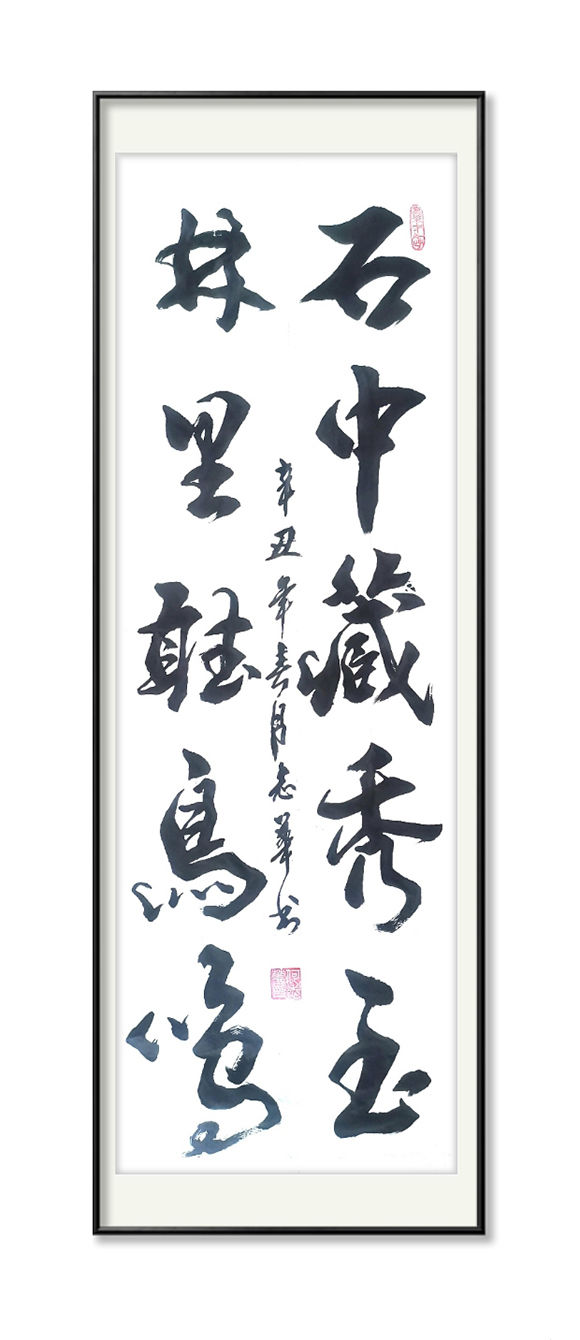 石中藏秀玉
林里聽鳥鳴
辛丑年春月志華书